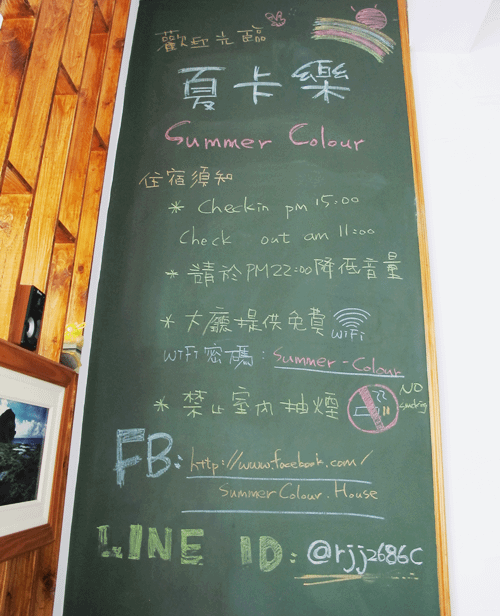 歡迎光臨
夏卡樂
Summer Colour
住宿須知
* Checkin pm 15:00
Check out am 11:00
* 請於PM22:00降低音量
* 大廳提供免費 WiFi
WiFi密碼:Summer-Colour
* 禁止室內抽煙 NO smoking
FB:http://www.facebook.com/
SummerColour.House
LINE ID:@rjj2686c